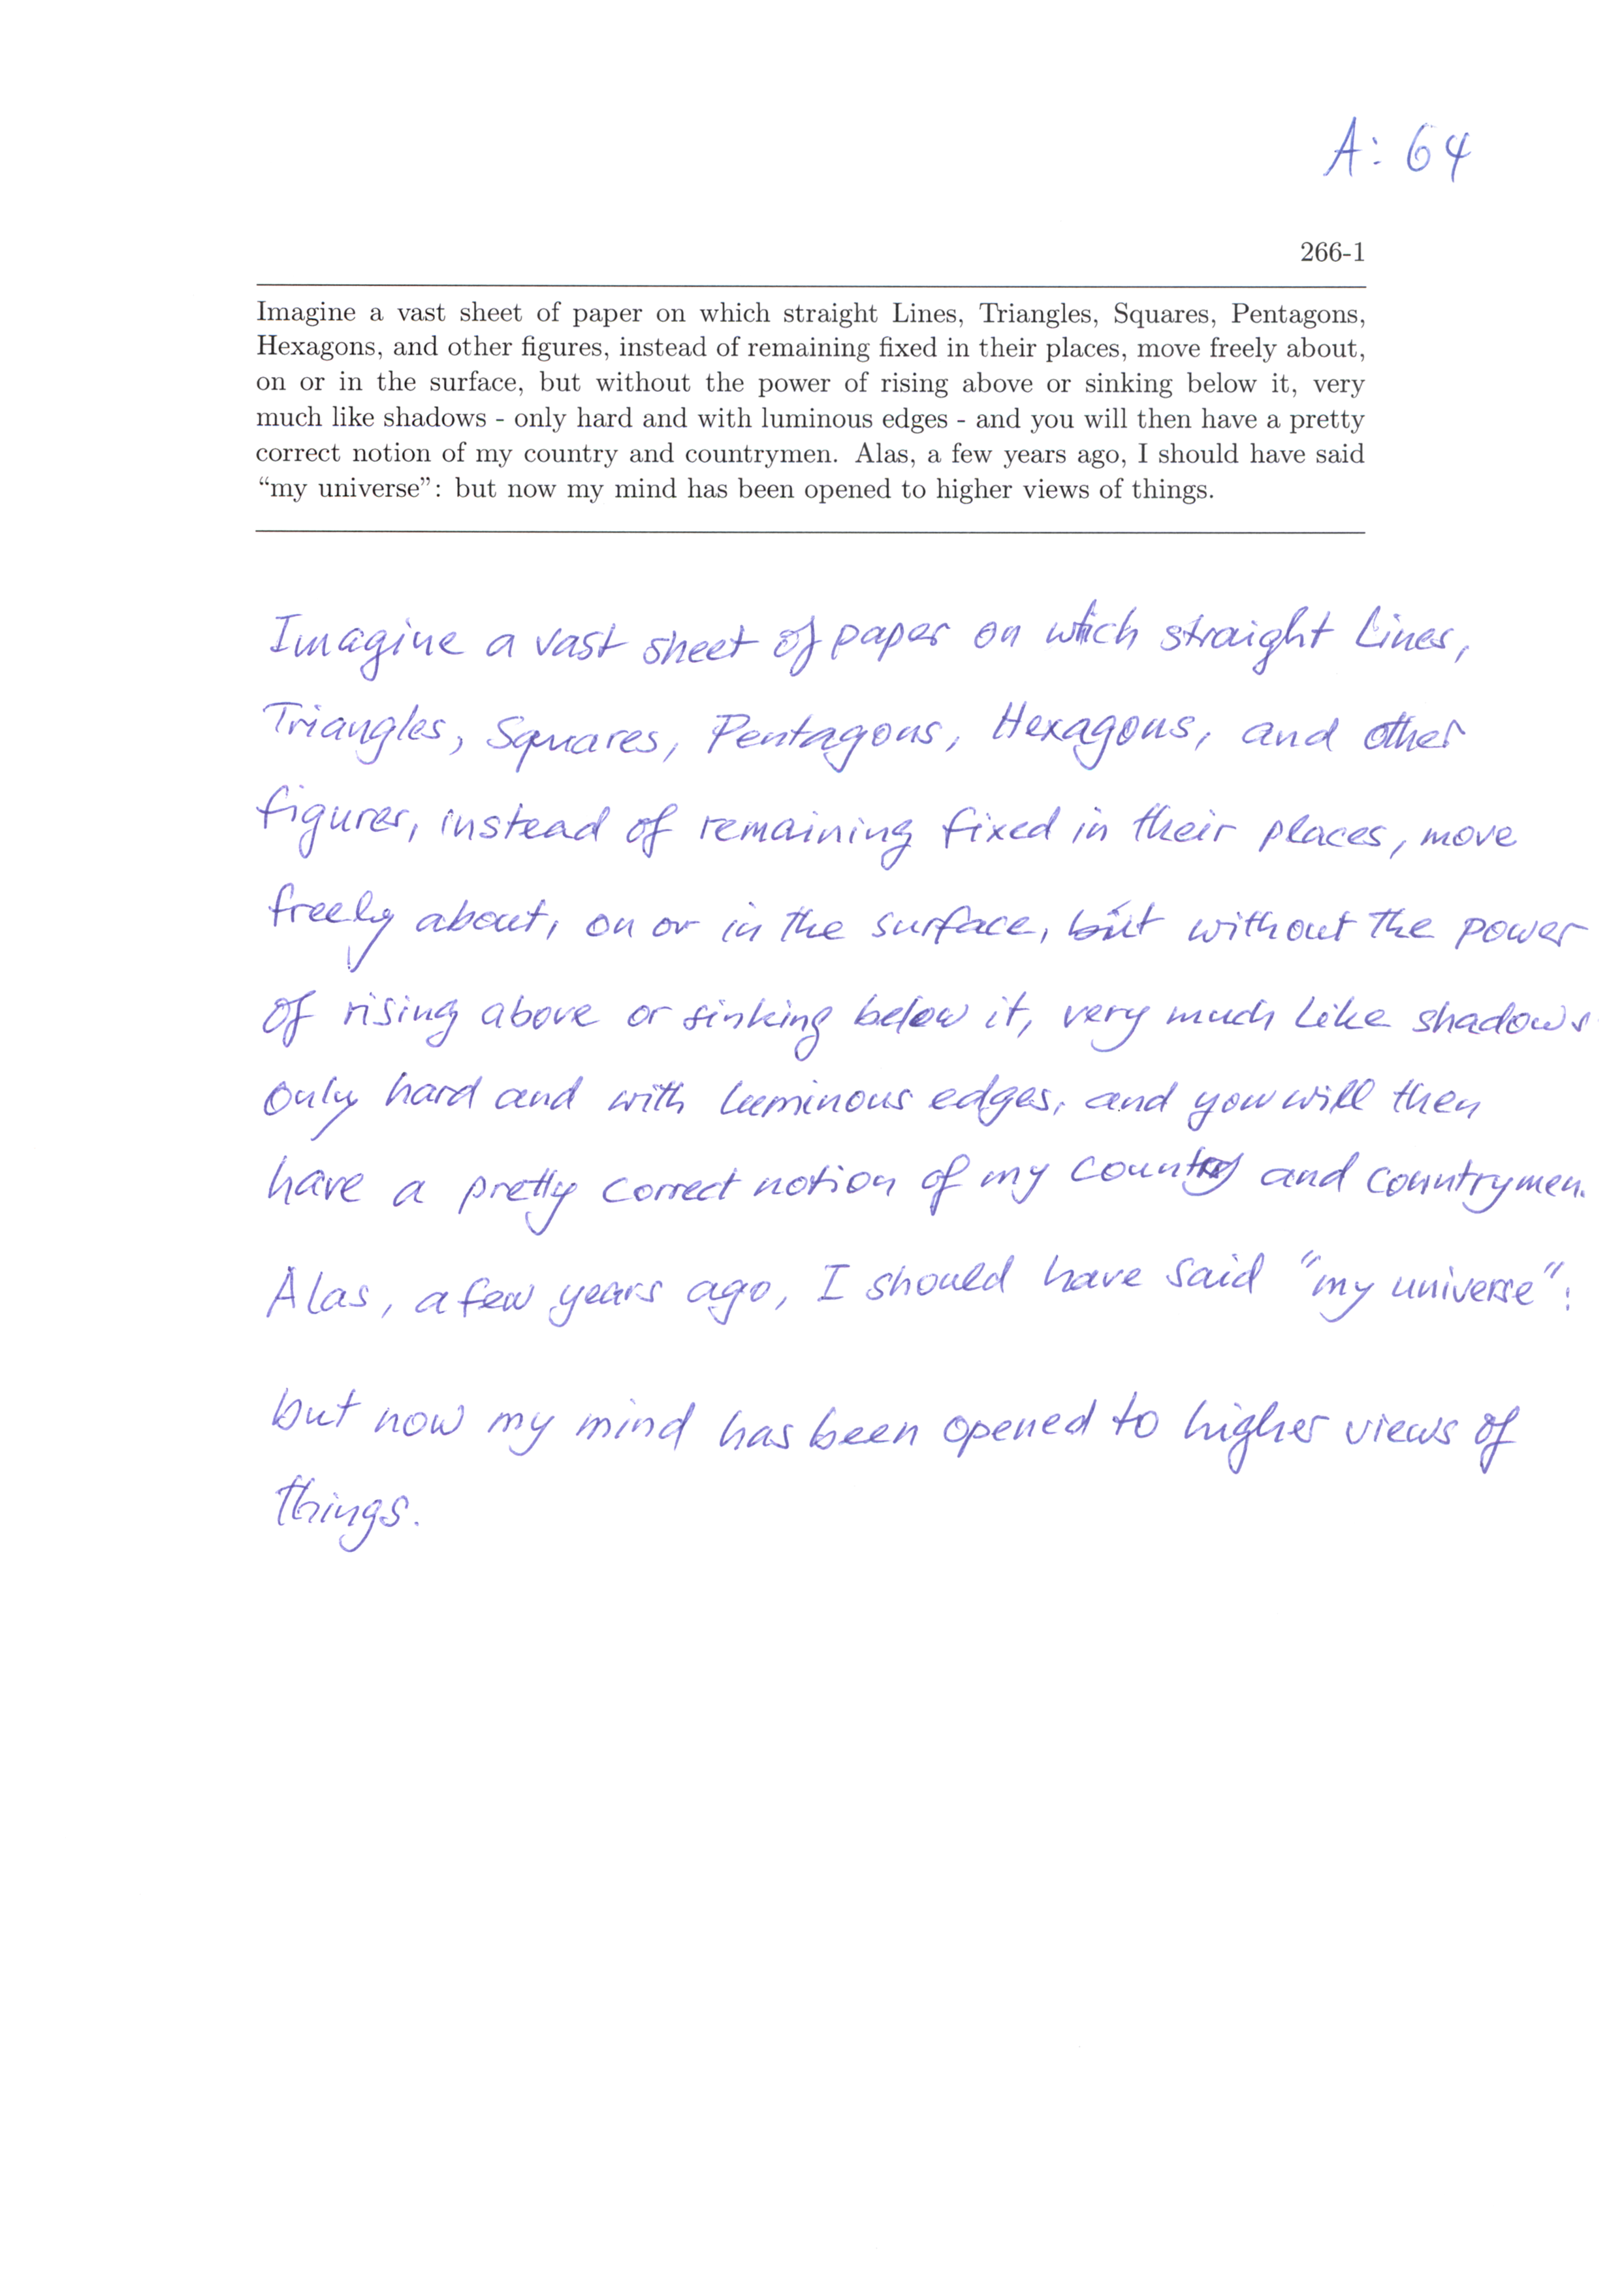 A: 64
266-1
Imagine a vast sheet of paper on which straight Lines, Triangles, Squares, Pentagons,
Hexagons, and other figures, instead of remaining fixed in their places, move freely about,
on or in the surface, but without the power of rising above or sinking below it, very
much like shadows - only hard and with luminous edges - and you will then have a pretty
correct notion of my country and countrymen. Alas, a few years ago, I should have said
“my universe”: but now my mind has been opened to higher views of things.
Imagine a vast sheet of paper on which straight Lines,
Triangles, Squares, Pentagons, Hexagons, and other
figures, instead of remaining fixed in their places, move
freely about, on or in the surface, but without the power
of rising above or sinking below it, very much like shadows
only hard and with luminous edges, and you will then
have a pretty correct notion of my country and countrymen.
Alas, a few years ago, I should have said "my universe":
but now my mind has been opened to higher views of
things.